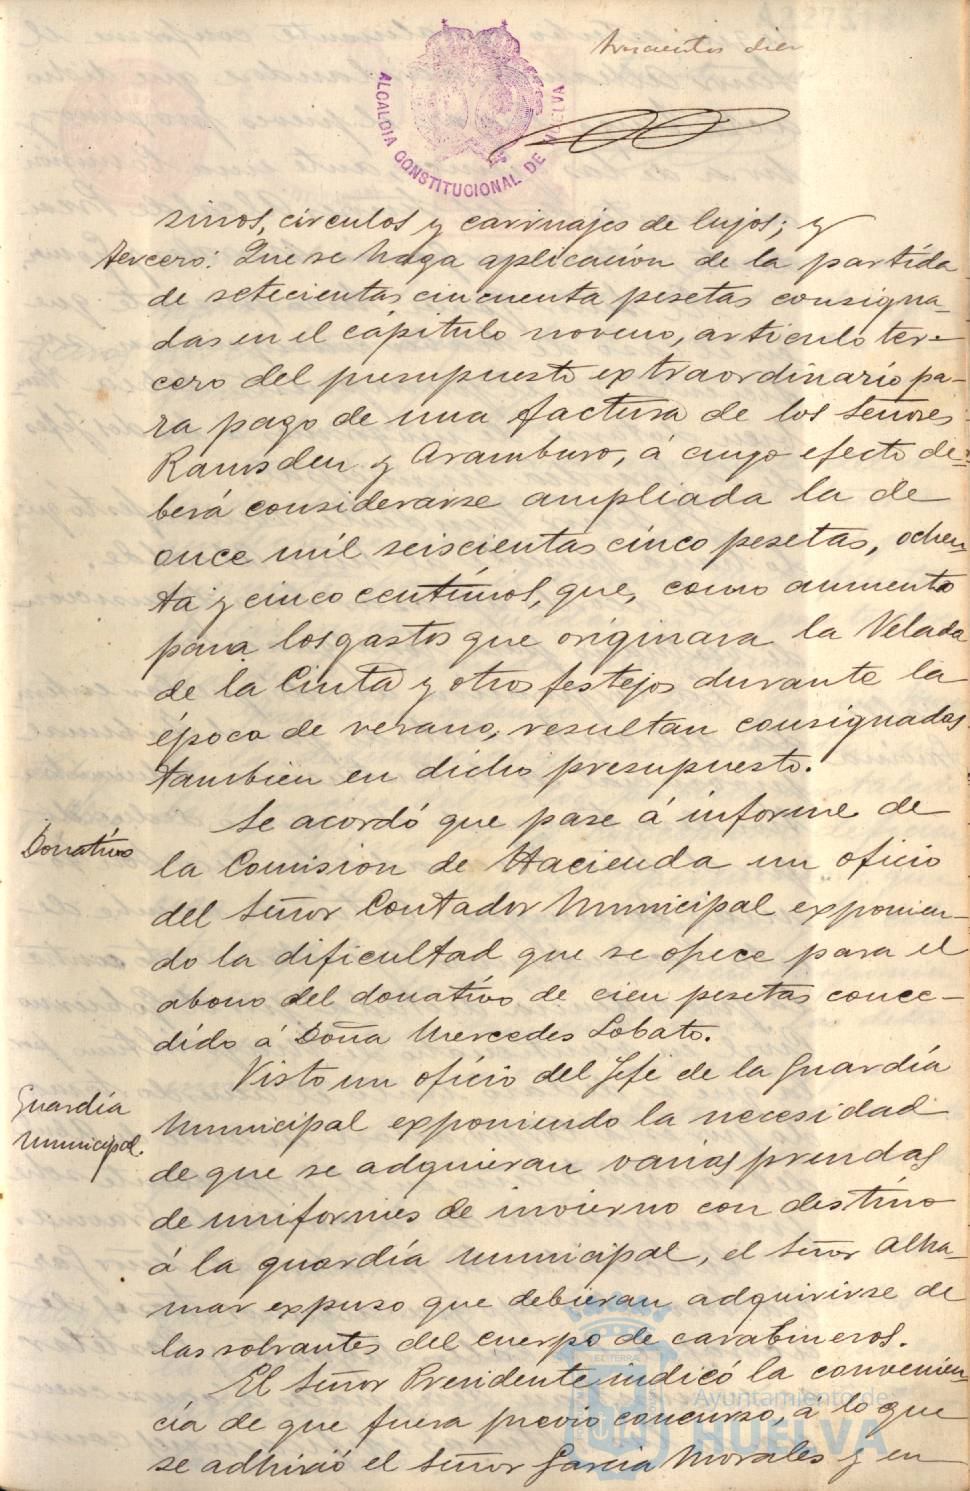 Trescientos diez
ALCALDIA CONSTITUCIONAL DE HUELVA
sinos, circulos y carruajes de lujos; y
tercero: Que se haga aplicación de la partida
de setecientas cincuenta pesetas consigna-
das en el capitulo noveno, articulo ter-
cero del presupuesto extraordinario pa-
ra pago de una factura de los Señores
Ramsden y Aramburo, á cuyo efecto de-
berá considerarse ampliada la de
once mil seiscientas cinco pesetas, ochen-
ta y cinco centimos, que, como aumento
para los gastos que originara la Velada
de la Cinta y otros festejos durante la
época de verano, resultan consignados
tambien en dicho presupuesto.
Donativo
Se acordó que pase á informe de
la Comision de Hacienda un oficio
del Señor Contador Municipal exponien-
do la dificultad que se ofrece para el
abono del donativo de cien pesetas conce-
dido á Doña Mercedes Lobato.
Guardia
Municipal.
Visto un oficio del Jefe de la Guardia
Municipal exponiendo la necesidad
de que se adquieran varias prendas
de uniformes de invierno con destino
á la guardia municipal, el Señor Alha-
mar expuso que debieran adquirirse de
las sobrantes del cuerpo de carabineros.
El Señor Presidente indicó la convenien-
cia de que fuera previo concurso, á lo que
se adhirió el Señor Garcia Morales y en
Ayuntamiento de
HUELVA